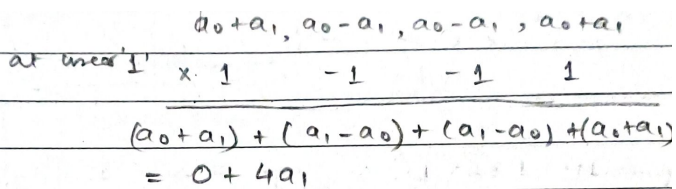 a₀+a₁, a₀-a₁, a₀-a₁, a₀+a₁
at user '1' × 1 -1 -1 1
(a₀+a₁) + (a₁-a₀) + (a₁-a₀) + (a₀+a₁)
= 0 + 4a₁